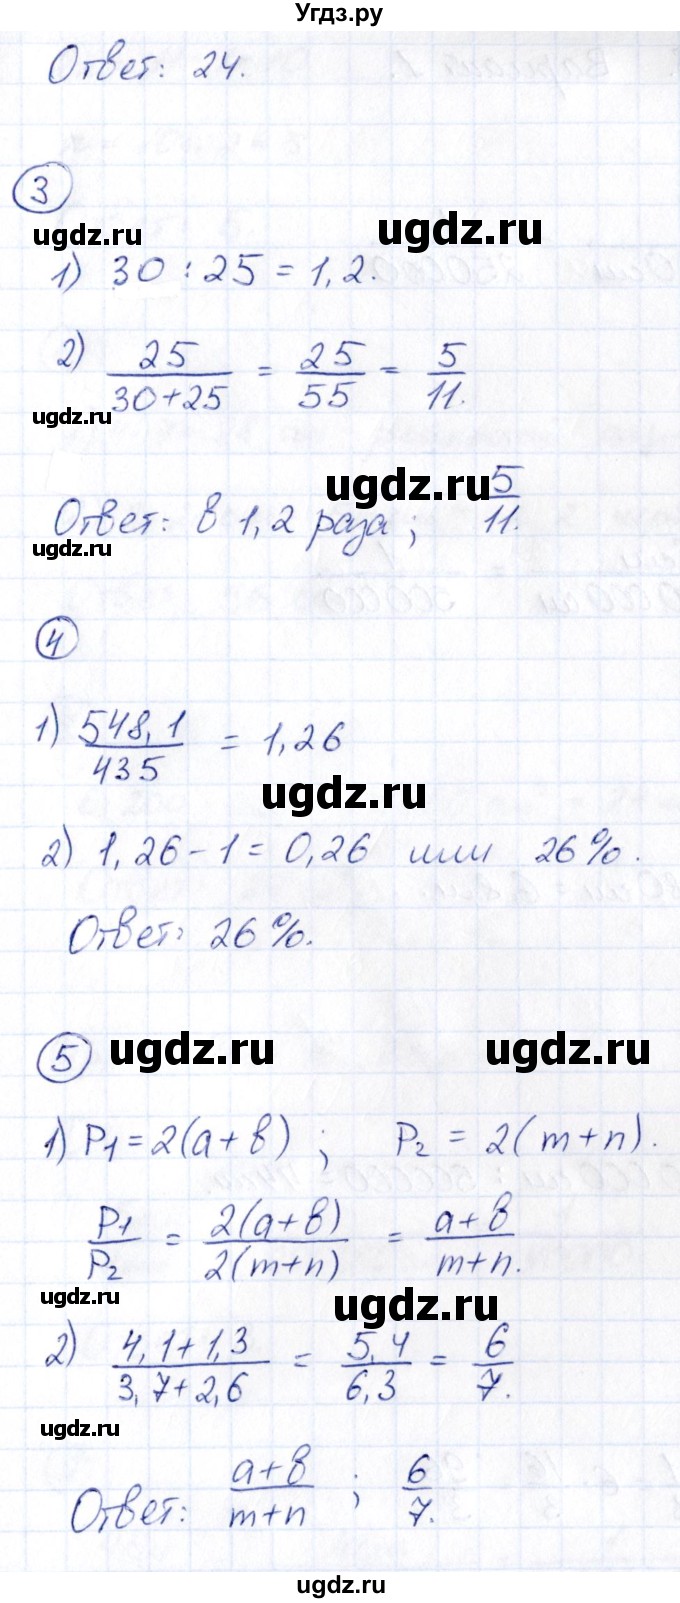 Угдз.ру
Ответ: 24.
3
ugdz.ru ugdz.ru
1) 30 : 25 = 1,2.
2) 25/(30+25) = 25/55 = 5/11.
ugdz.ru
ugdz.ru
Ответ: в 1,2 раза; 5/11.
ugdz.ru
4
1) 548,1/435 = 1,26
ugdz.ru
2) 1,26 - 1 = 0,26 или 26%.
Ответ: 26%.
5 ugdz.ru ugdz.ru
1) P1 = 2(a+b); P2 = 2(m+n).
P1/P2 = 2(a+b)/2(m+n) = (a+b)/(m+n).
ugdz.ru ugdz.ru
2) (4,1+1,3)/(3,7+2,6) = 5,4/6,3 = 6/7.
ugdz.ru
Ответ: (a+b)/(m+n); 6/7.
ugdz.ru